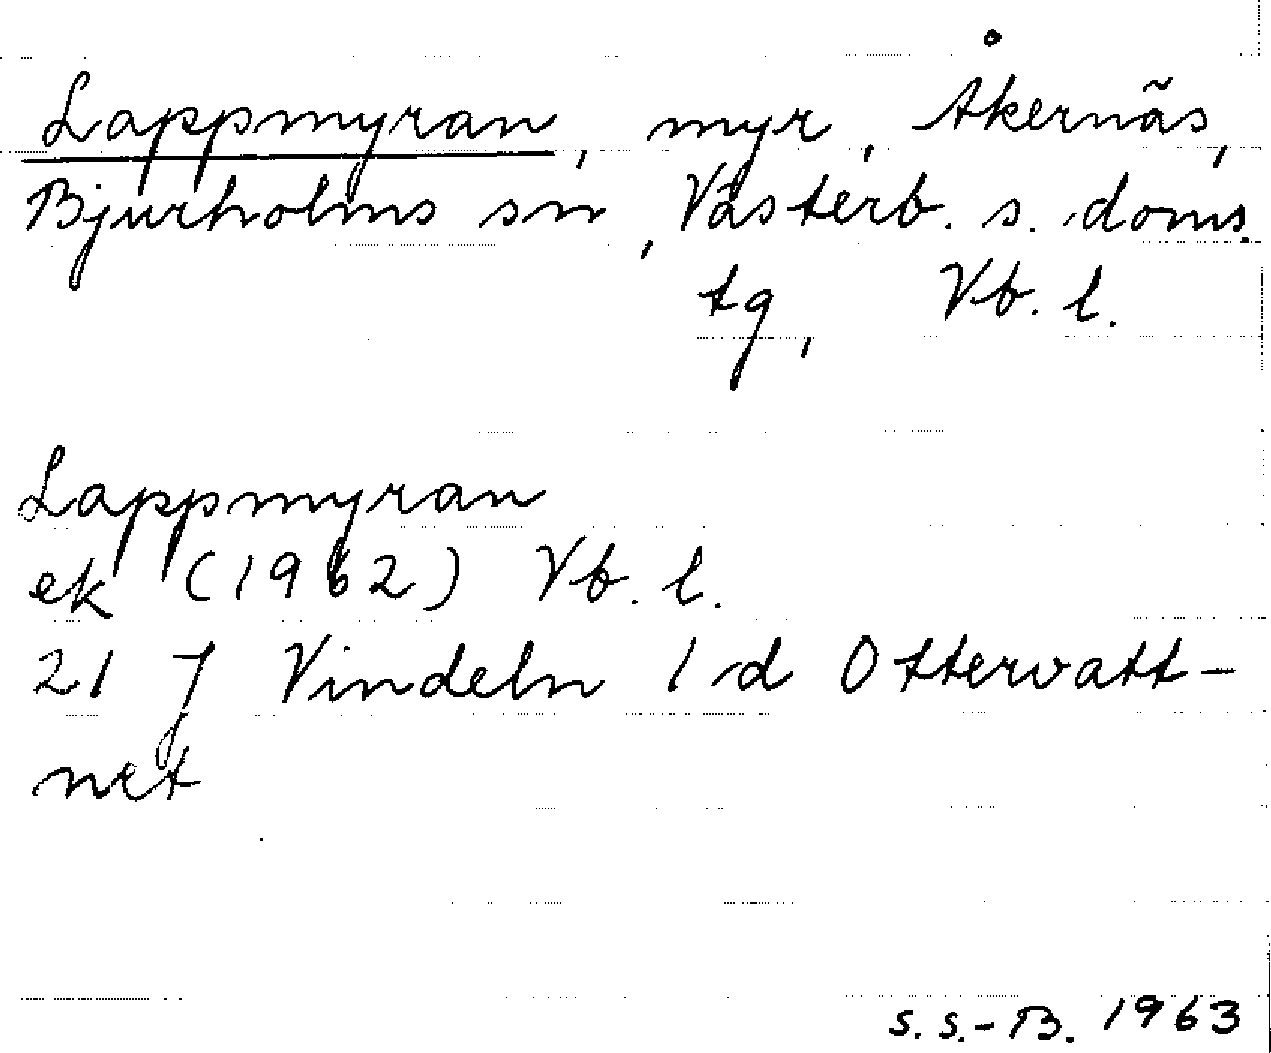 Lappmyran, myr, Åkernäs,
Bjurholms sn, Västerb. s. doms.
tg, Vb. l.
Lappmyran
ek (1962) Vb. l.
21 J Vindeln 1 d Ottervatt-
net
S. S.-B. 1963